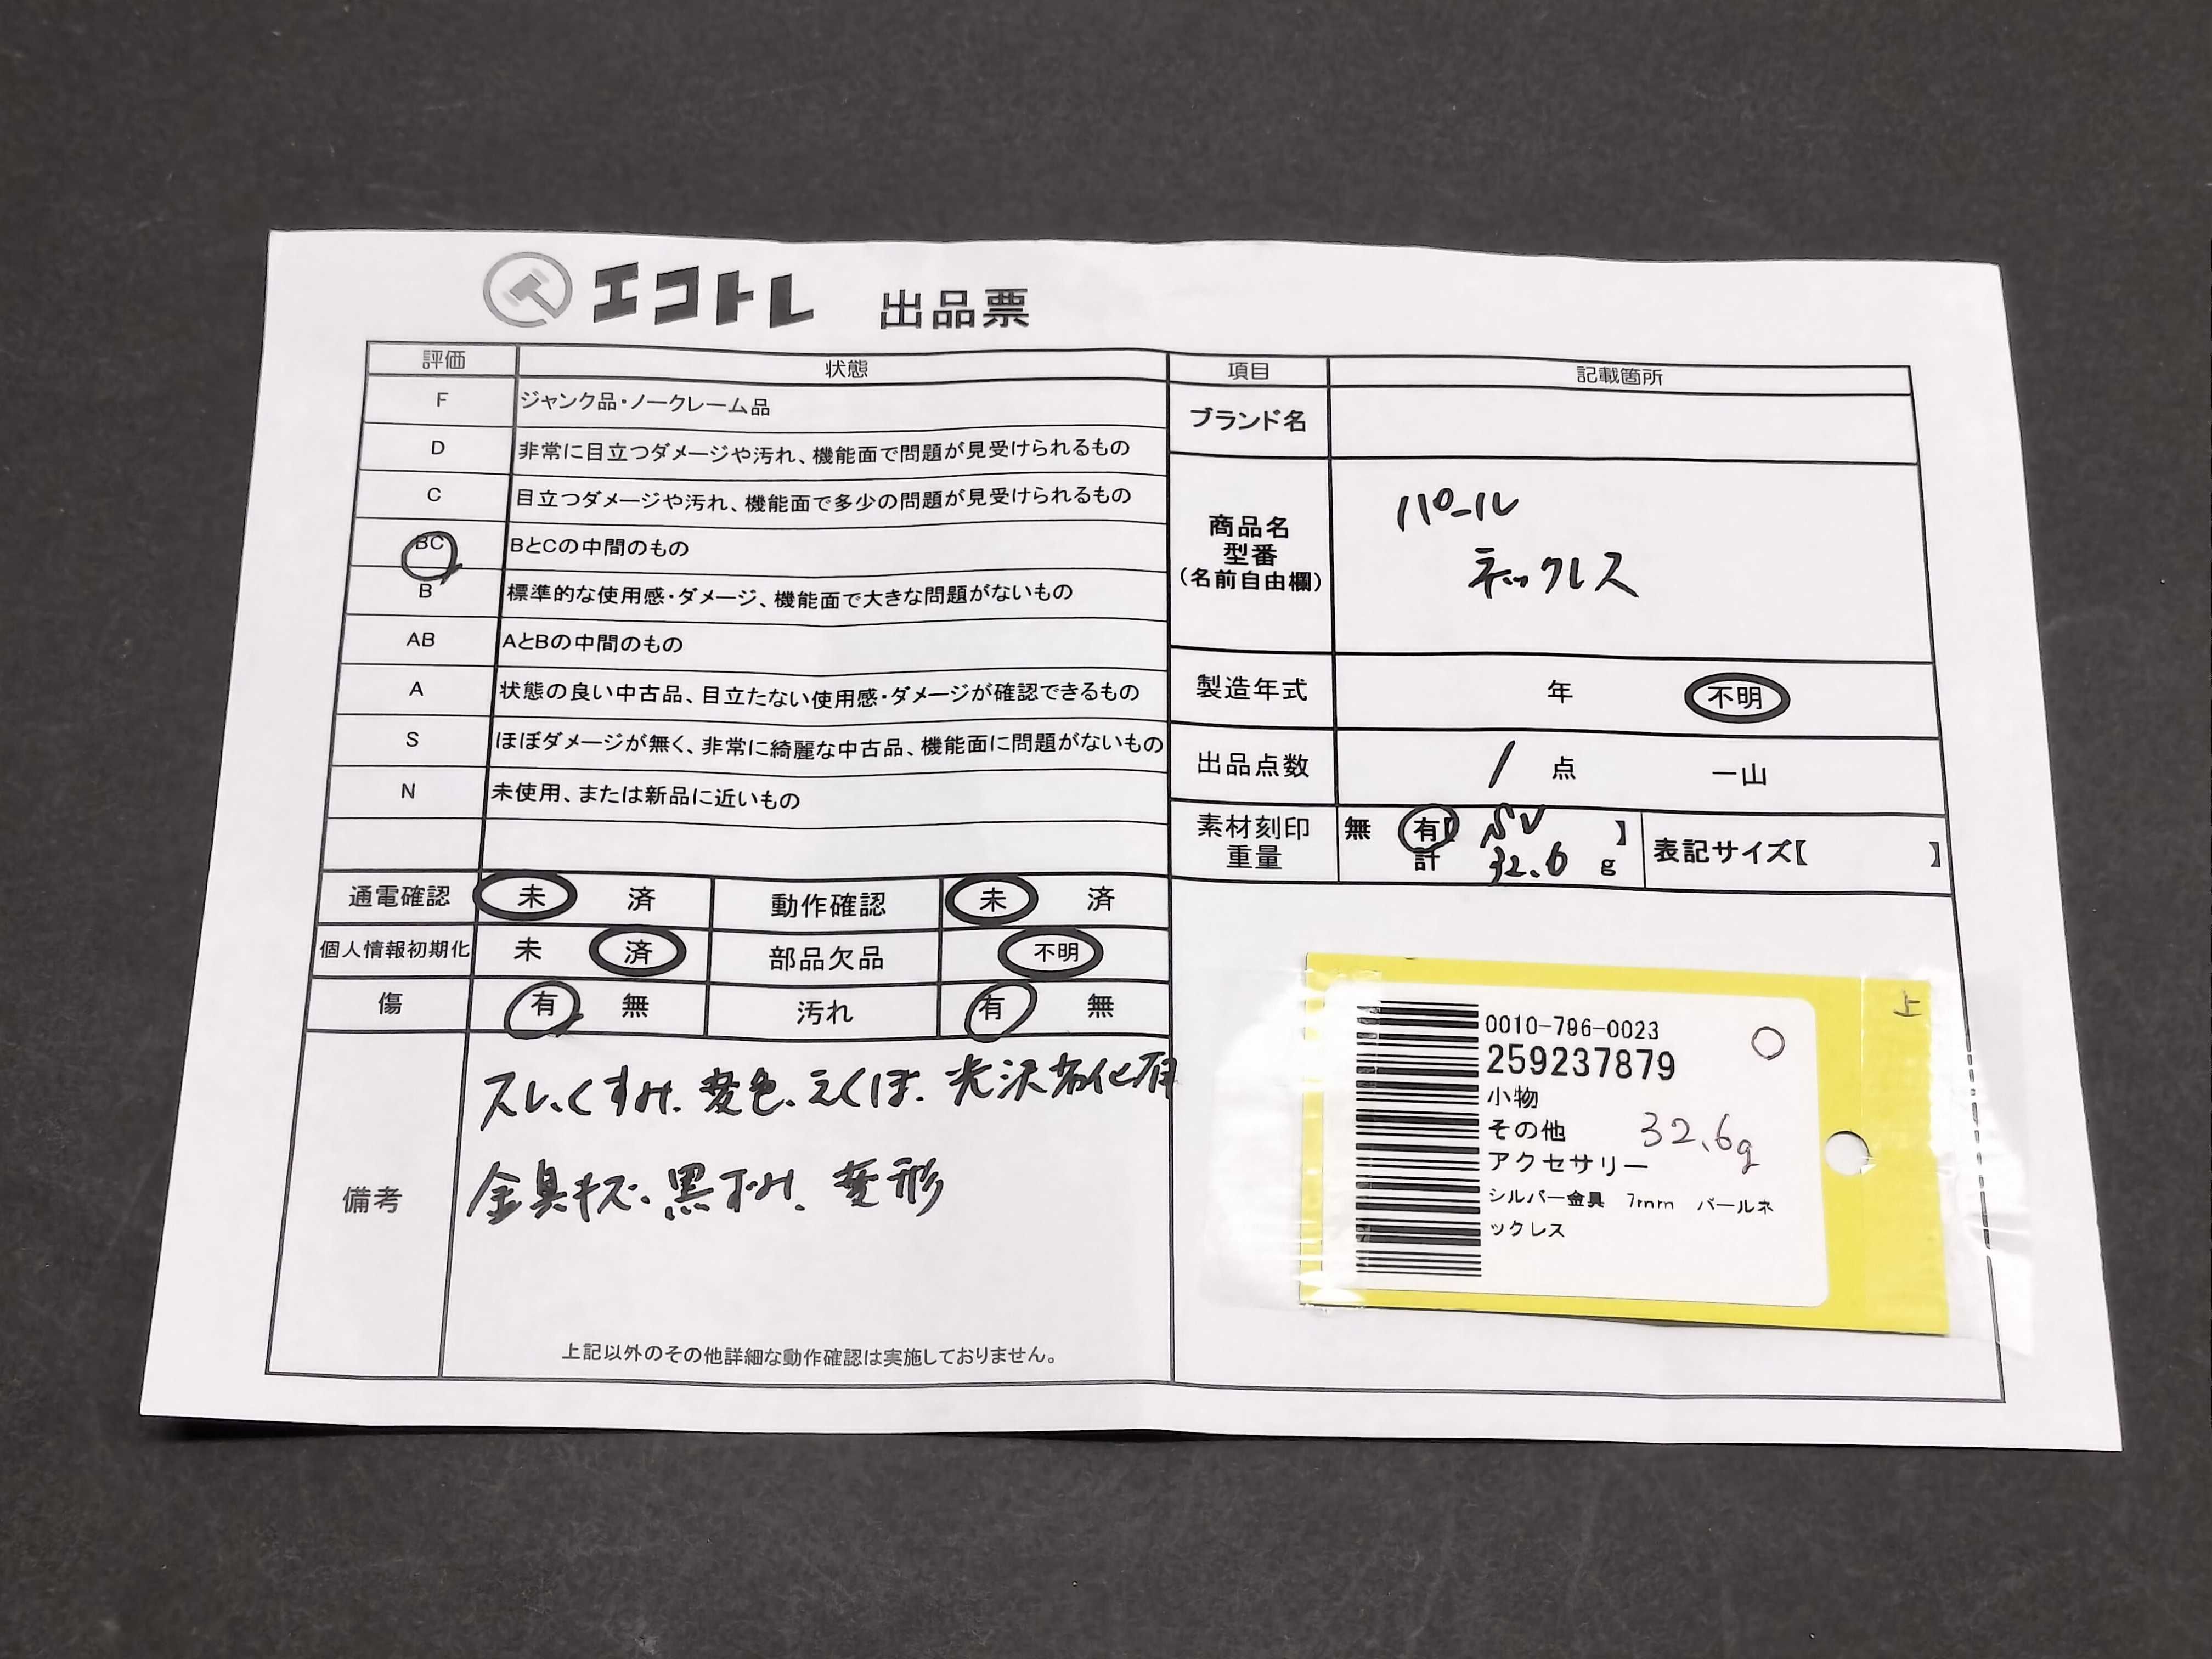 エコトレ 出品票
評価 状態
F ジャンク品・ノークレーム品
D 非常に目立つダメージや汚れ、機能面で問題が見受けられるもの
C 目立つダメージや汚れ、機能面で多少の問題が見受けられるもの
BC BとCの中間のもの
B 標準的な使用感・ダメージ、機能面で大きな問題がないもの
AB AとBの中間のもの
A 状態の良い中古品、目立たない使用感・ダメージが確認できるもの
S ほぼダメージが無く、非常に綺麗な中古品、機能面に問題がないもの
N 未使用、または新品に近いもの
通電確認 未 済 動作確認 未 済
個人情報初期化 未 済 部品欠品 不明
傷 有 無 汚れ 有 無
備考
スレ、くすみ、変色、えくぼ、光沢劣化有
金具キズ、黒ずみ、変形
上記以外のその他詳細な動作確認は実施しておりません。
項目 記載箇所
ブランド名
商品名
型番
(名前自由欄)
パール
ネックレス
製造年式 年 不明
出品点数 1 点 一山
素材刻印
重量
無 有【 SV 】
計 32.6 g
表記サイズ【 】
上
0010-796-0023
259237879
小物
その他
32.6g
アクセサリー
シルバー金具 7mm パールネ
ックレス